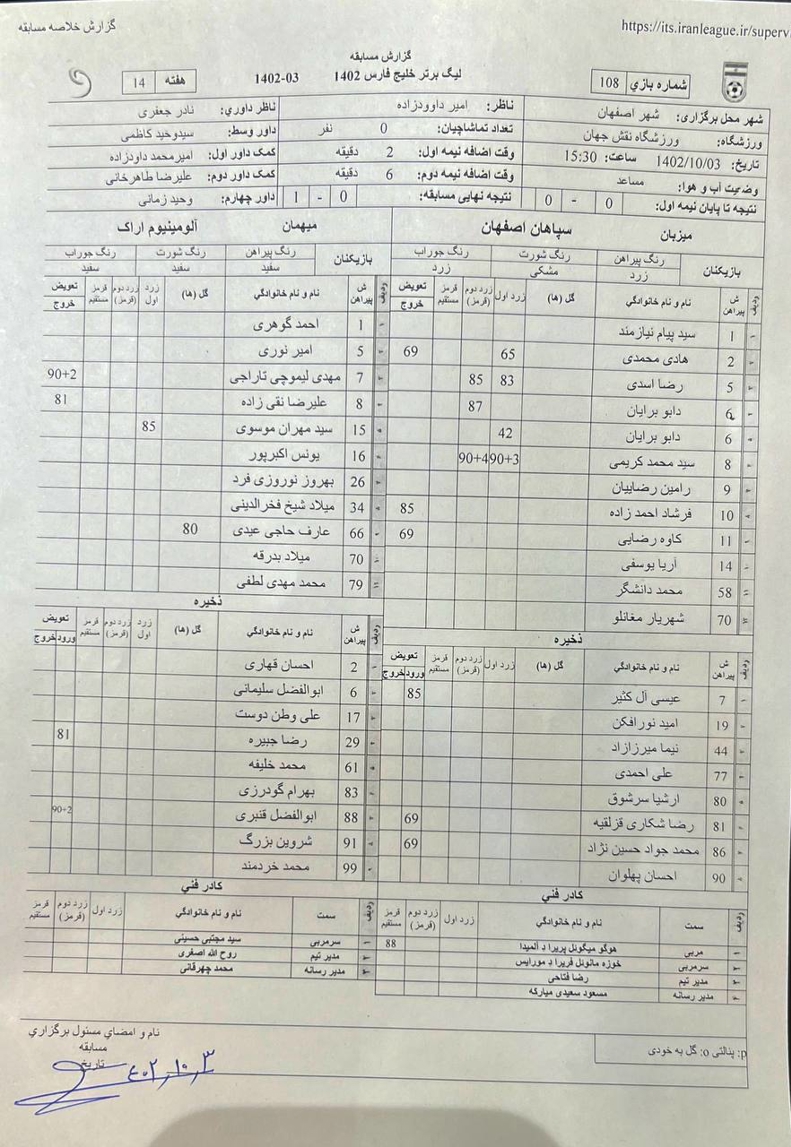 گزارش خلاصه مسابقه
https://its.iranleague.ir/superv
گزارش مسابقه
لیگ برتر خلیج فارس 1402 1402-03
شماره بازي 108
هفته 14
شهر محل برگزاری: شهر اصفهان ناظر: امیر داوودزاده ناظر داوري: نادر جعفری
ورزشگاه: ورزشگاه نقش جهان تعداد تماشاچیان: 0 نفر داور وسط: سیدوحید کاظمی
تاریخ: 1402/10/03 ساعت: 15:30 وقت اضافه نیمه اول: 2 دقیقه کمک داور اول: امیرمحمد داودزاده
وضعیت آب و هوا: مساعد وقت اضافه نیمه دوم: 6 دقیقه کمک داور دوم: علیرضا طاهرخانی
نتیجه تا پایان نیمه اول: 0 - 0 نتیجه نهایی مسابقه: 0 - 1 داور چهارم: وحید زمانی
میزبان سپاهان اصفهان
بازیکنان رنگ پیراهن رنگ شورت رنگ جوراب
زرد مشکی زرد
ردیف ش پیراهن نام و نام خانوادگي گل (ها) زرد اول زرد دوم (قرمز) قرمز مستقیم تعویض خروج
1 سید پیام نیازمند
2 هادی محمدی 65 69
5 رضا اسدی 83 85
6 دابو برایان 87
6 دابو برایان 42
8 سید محمد کریمی 90+3 90+4
9 رامین رضاییان
10 فرشاد احمد زاده 85
11 کاوه رضایی 69
14 آریا یوسفی
58 محمد دانشگر
70 شهریار مغانلو
ذخیره
ردیف ش پیراهن نام و نام خانوادگي گل (ها) زرد اول زرد دوم (قرمز) قرمز مستقیم تعویض ورود خروج
7 عیسی آل کثیر 85
19 امید نورافکن
44 نیما میرزازاد
77 علی احمدی
80 ارشیا سرشوق
81 رضا شکاری قزلقیه 69
86 محمد جواد حسین نژاد 69
90 احسان پهلوان
کادر فني
ردیف سمت نام و نام خانوادگي زرد اول زرد دوم (قرمز) قرمز مستقیم
۱ مربی هوگو میگوئل پریرا د آلمیدا 88
۲ سرمربی خوزه مانوئل فریرا د مورایس
۳ مدیر تیم رضا فتاحی
۴ مدیر رسانه مسعود سعیدی مبارکه
میهمان آلومینیوم اراک
بازیکنان رنگ پیراهن رنگ شورت رنگ جوراب
سفید سفید سفید
ردیف ش پیراهن نام و نام خانوادگي گل (ها) زرد اول زرد دوم (قرمز) قرمز مستقیم تعویض خروج
1 احمد گوهری
5 امیر نوری
7 مهدی لیموچی تاراجی 90+2
8 علیرضا نقی زاده 81
15 سید مهران موسوی 85
16 یونس اکبرپور
26 بهروز نوروزی فرد
34 میلاد شیخ فخرالدینی
66 عارف حاجی عیدی 80
70 میلاد بدرقه
79 محمد مهدی لطفی
ذخیره
ردیف ش پیراهن نام و نام خانوادگي گل (ها) زرد اول زرد دوم (قرمز) قرمز مستقیم تعویض ورود خروج
2 احسان قهاری
6 ابوالفضل سلیمانی
17 علی وطن دوست
29 رضا جبیره 81
61 محمد خلیفه
83 بهرام گودرزی
88 ابوالفضل قنبری 90+2
91 شروین بزرگ
99 محمد خردمند
کادر فني
ردیف سمت نام و نام خانوادگي زرد اول زرد دوم (قرمز) قرمز مستقیم
۱ سرمربی سید مجتبی حسینی
۲ مدیر تیم روح الله اصغری
۳ مدیر رسانه محمد چهرقانی
p: پنالتی o: گل به خودی
نام و امضاي مسئول برگزاري
مسابقه
تاریخ
۴۰۲,۱۰,۳